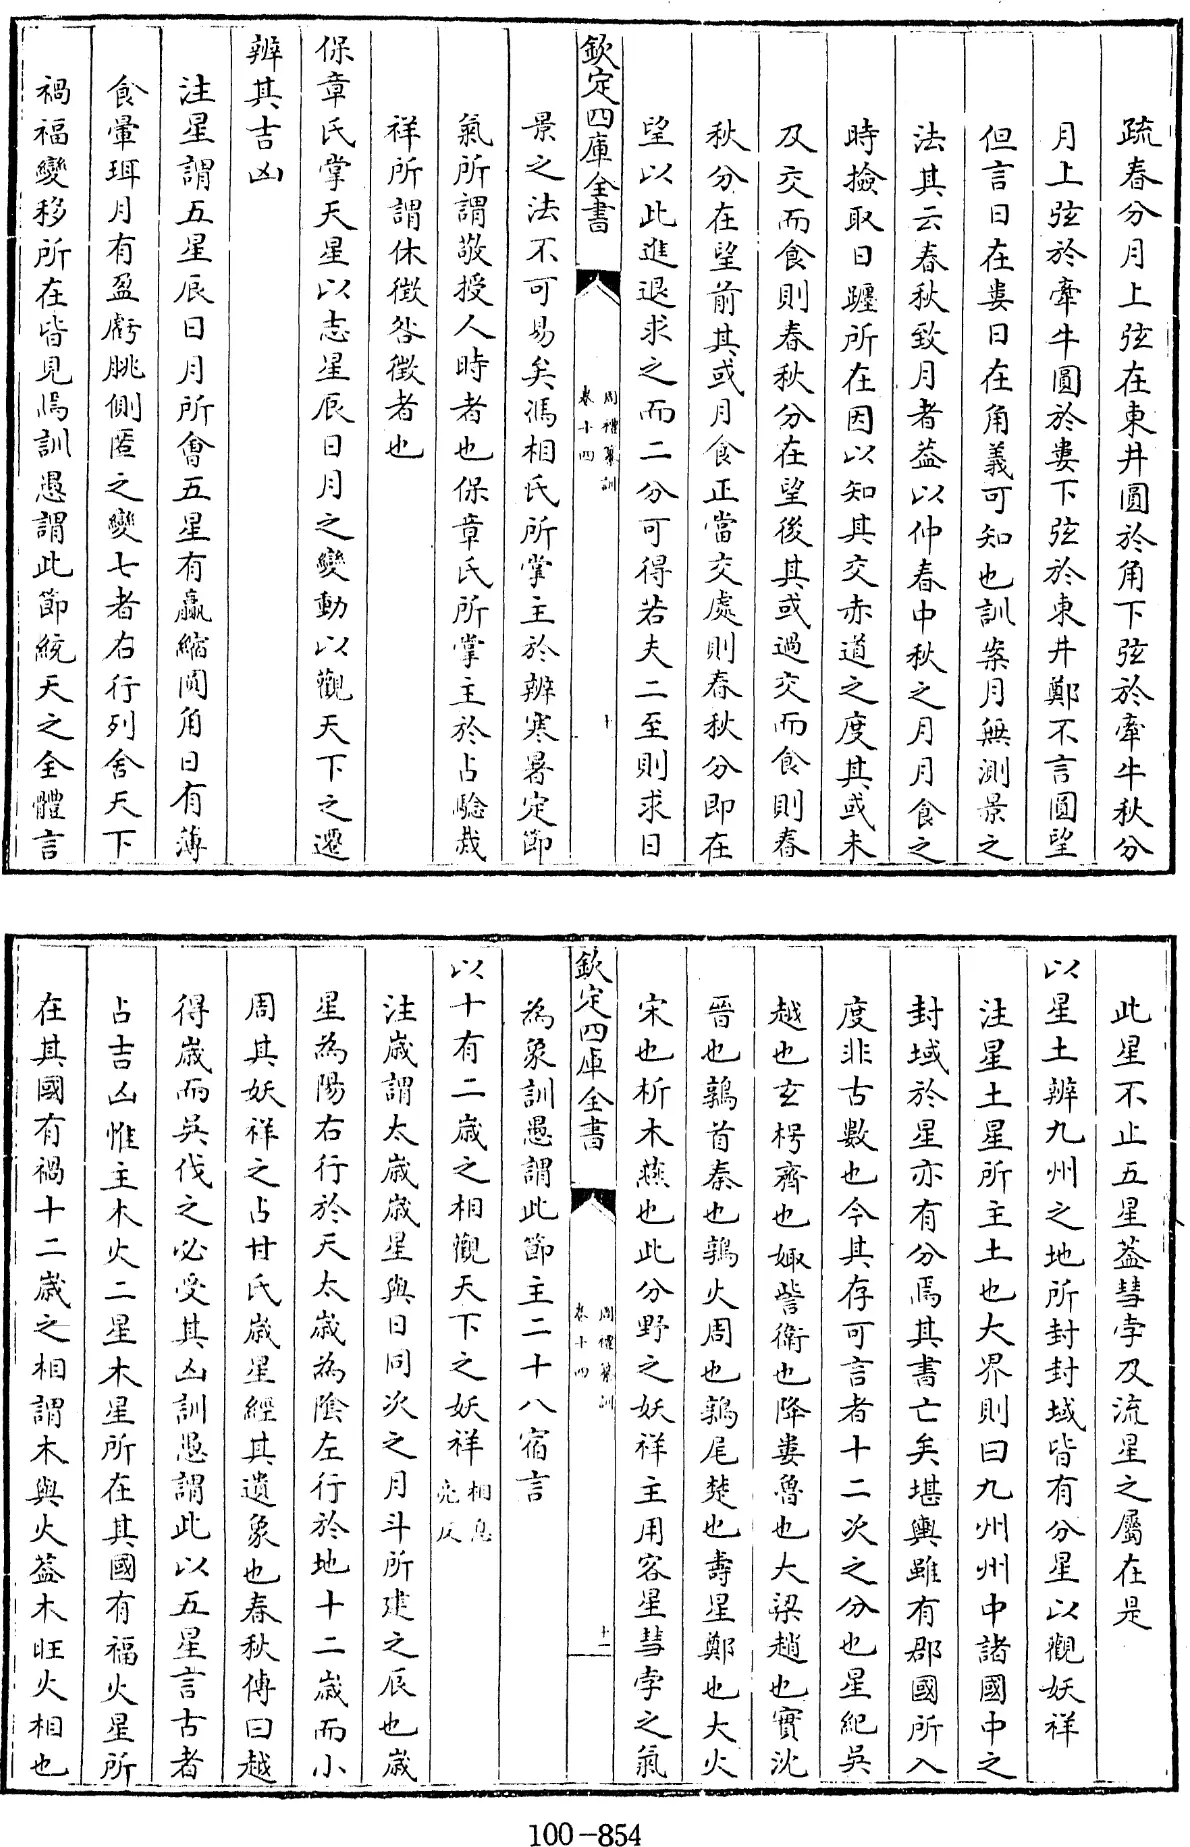 疏春分月上弦在東井圓於角下弦於牽牛秋分
月上弦於牽牛圓於婁下弦於東井鄭不言圓望
但言日在婁日在角義可知也訓案月無測景之
法其云春秋致月者葢以仲春中秋之月月食之
時撿取日躔所在因以知其交赤道之度其或未
及交而食則春秋分在望後其或過交而食則春
秋分在望前其或月食正當交處則春秋分即在
望以此進退求之而二分可得若夫二至則求日
欽定四庫全書
周禮纂訓
卷十四
十
景之法不可易矣馮相氏所掌主於辨寒暑定節
氣所謂敬授人時者也保章氏所掌主於占驗烖
祥所謂休徴咎徴者也
保章氏掌天星以志星辰日月之變動以觀天下之遷
辨其吉凶
注星謂五星辰日月所會五星有贏縮圜角日有薄
食暈珥月有盈虧朓側匿之變七者右行列舍天下
禍福變移所在皆見焉訓愚謂此節統天之全體言
此星不止五星葢彗孛及流星之屬在是
以星土辨九州之地所封封域皆有分星以觀妖祥
注星土星所主土也大界則曰九州州中諸國中之
封域於星亦有分焉其書亡矣堪輿雖有郡國所入
度非古數也今其存可言者十二次之分也星紀吳
越也玄枵齊也娵訾衛也降婁魯也大梁趙也實沈
晉也鶉首秦也鶉火周也鶉尾楚也壽星鄭也大火
宋也析木燕也此分野之妖祥主用客星彗孛之氣
欽定四庫全書
周禮纂訓
卷十四
十一
為象訓愚謂此節主二十八宿言
以十有二歲之相觀天下之妖祥相息亮反
注歲謂太歲歲星與日同次之月斗所建之辰也歲
星為陽右行於天太歲為陰左行於地十二歲而小
周其妖祥之占甘氏歲星經其遺象也春秋傳曰越
得歲而吳伐之必受其凶訓愚謂此以五星言古者
占吉凶惟主木火二星木星所在其國有福火星所
在其國有禍十二歲之相謂木與火葢木旺火相也
100-854